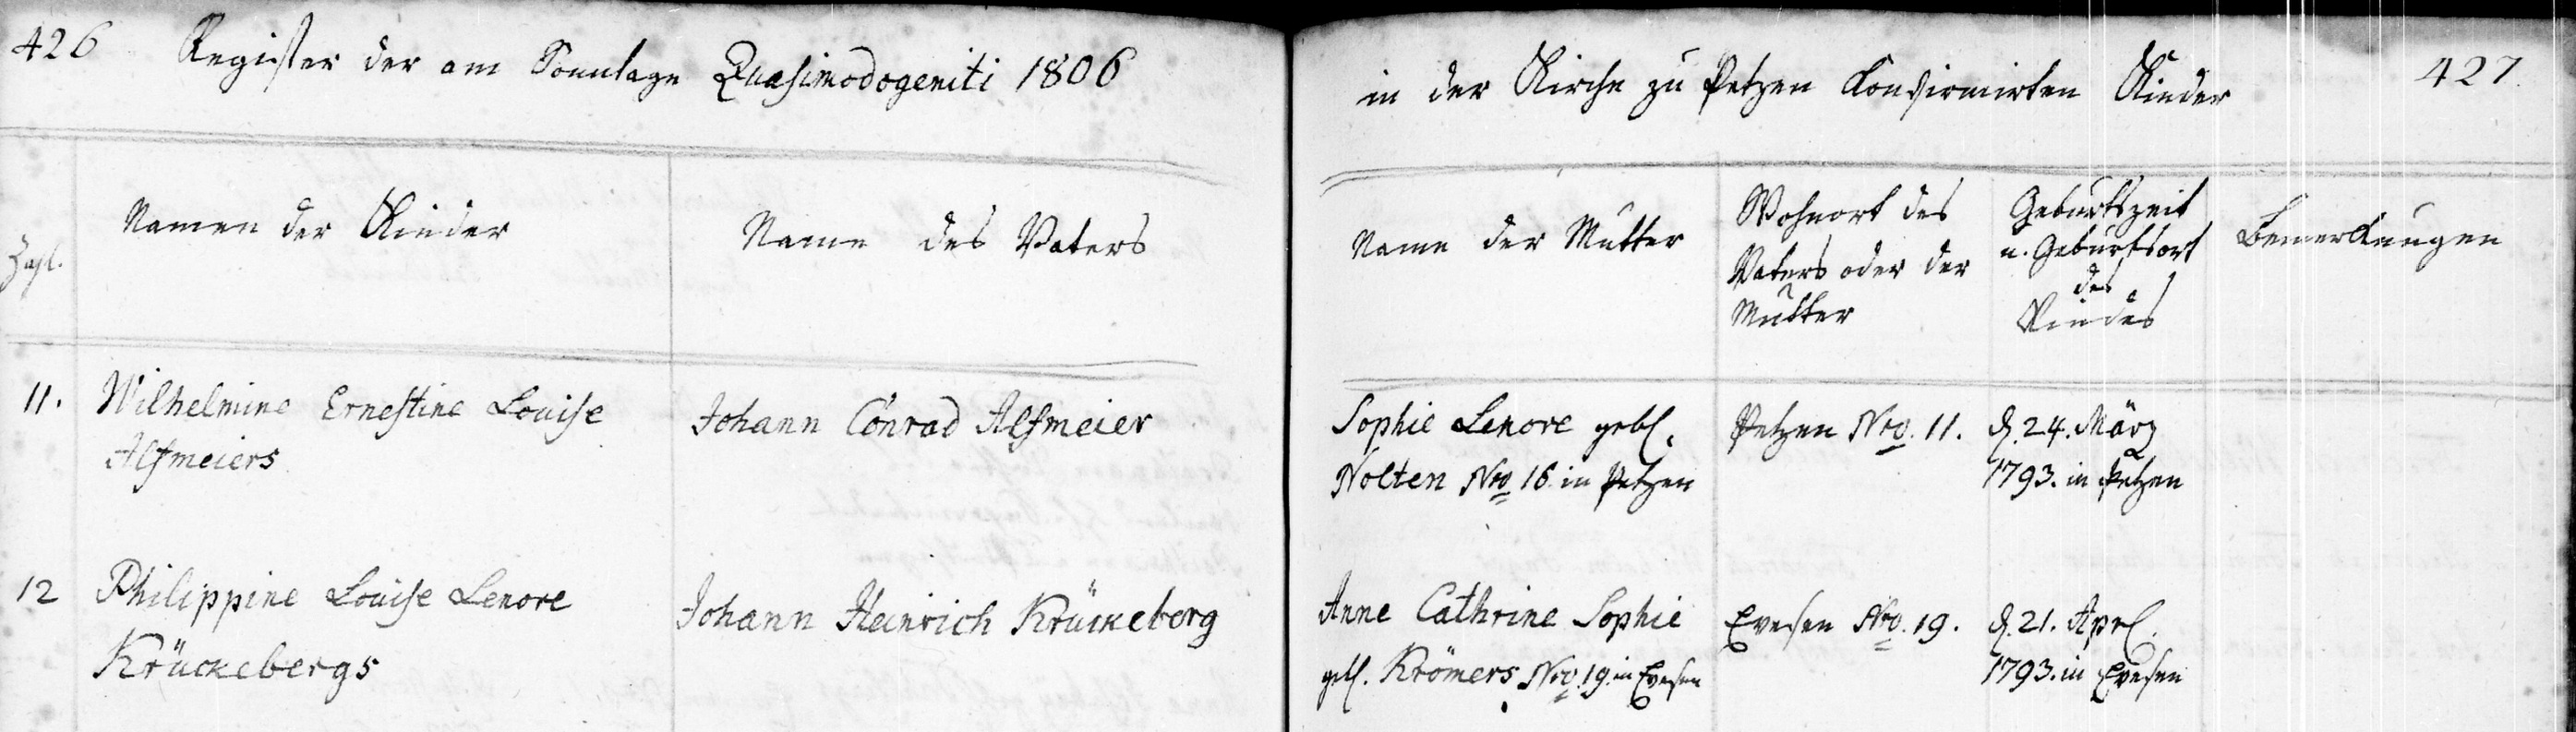 426 Register der am Sonntage Quasimodogeniti 1806
in der Kirche zu Petzen Konfirmirten Kinder 427.
Zahl.
Namen der Kinder
Name des Vaters
Name der Mutter
Wohnort des
Vaters oder der
Mutter
Geburtszeit
u. Geburtsort
des
Kindes
Bemerkungen
11. Wilhelmine Ernestine Louise
Alfmeiers
Johann Conrad Alfmeier
Sophie Lenore gebl.
Nolten Nro 16 in Petzen
Petzen Nro. 11.
d. 24. März
1793. in Petzen
12 Philippine Louise Lenore
Krückebergs
Johann Heinrich Krückeberg
Anne Cathrine Sophie
gebl. Krömers Nro. 19 in Evesen
Evesen Nro. 19.
d. 21. Aprl.
1793. in Evesen